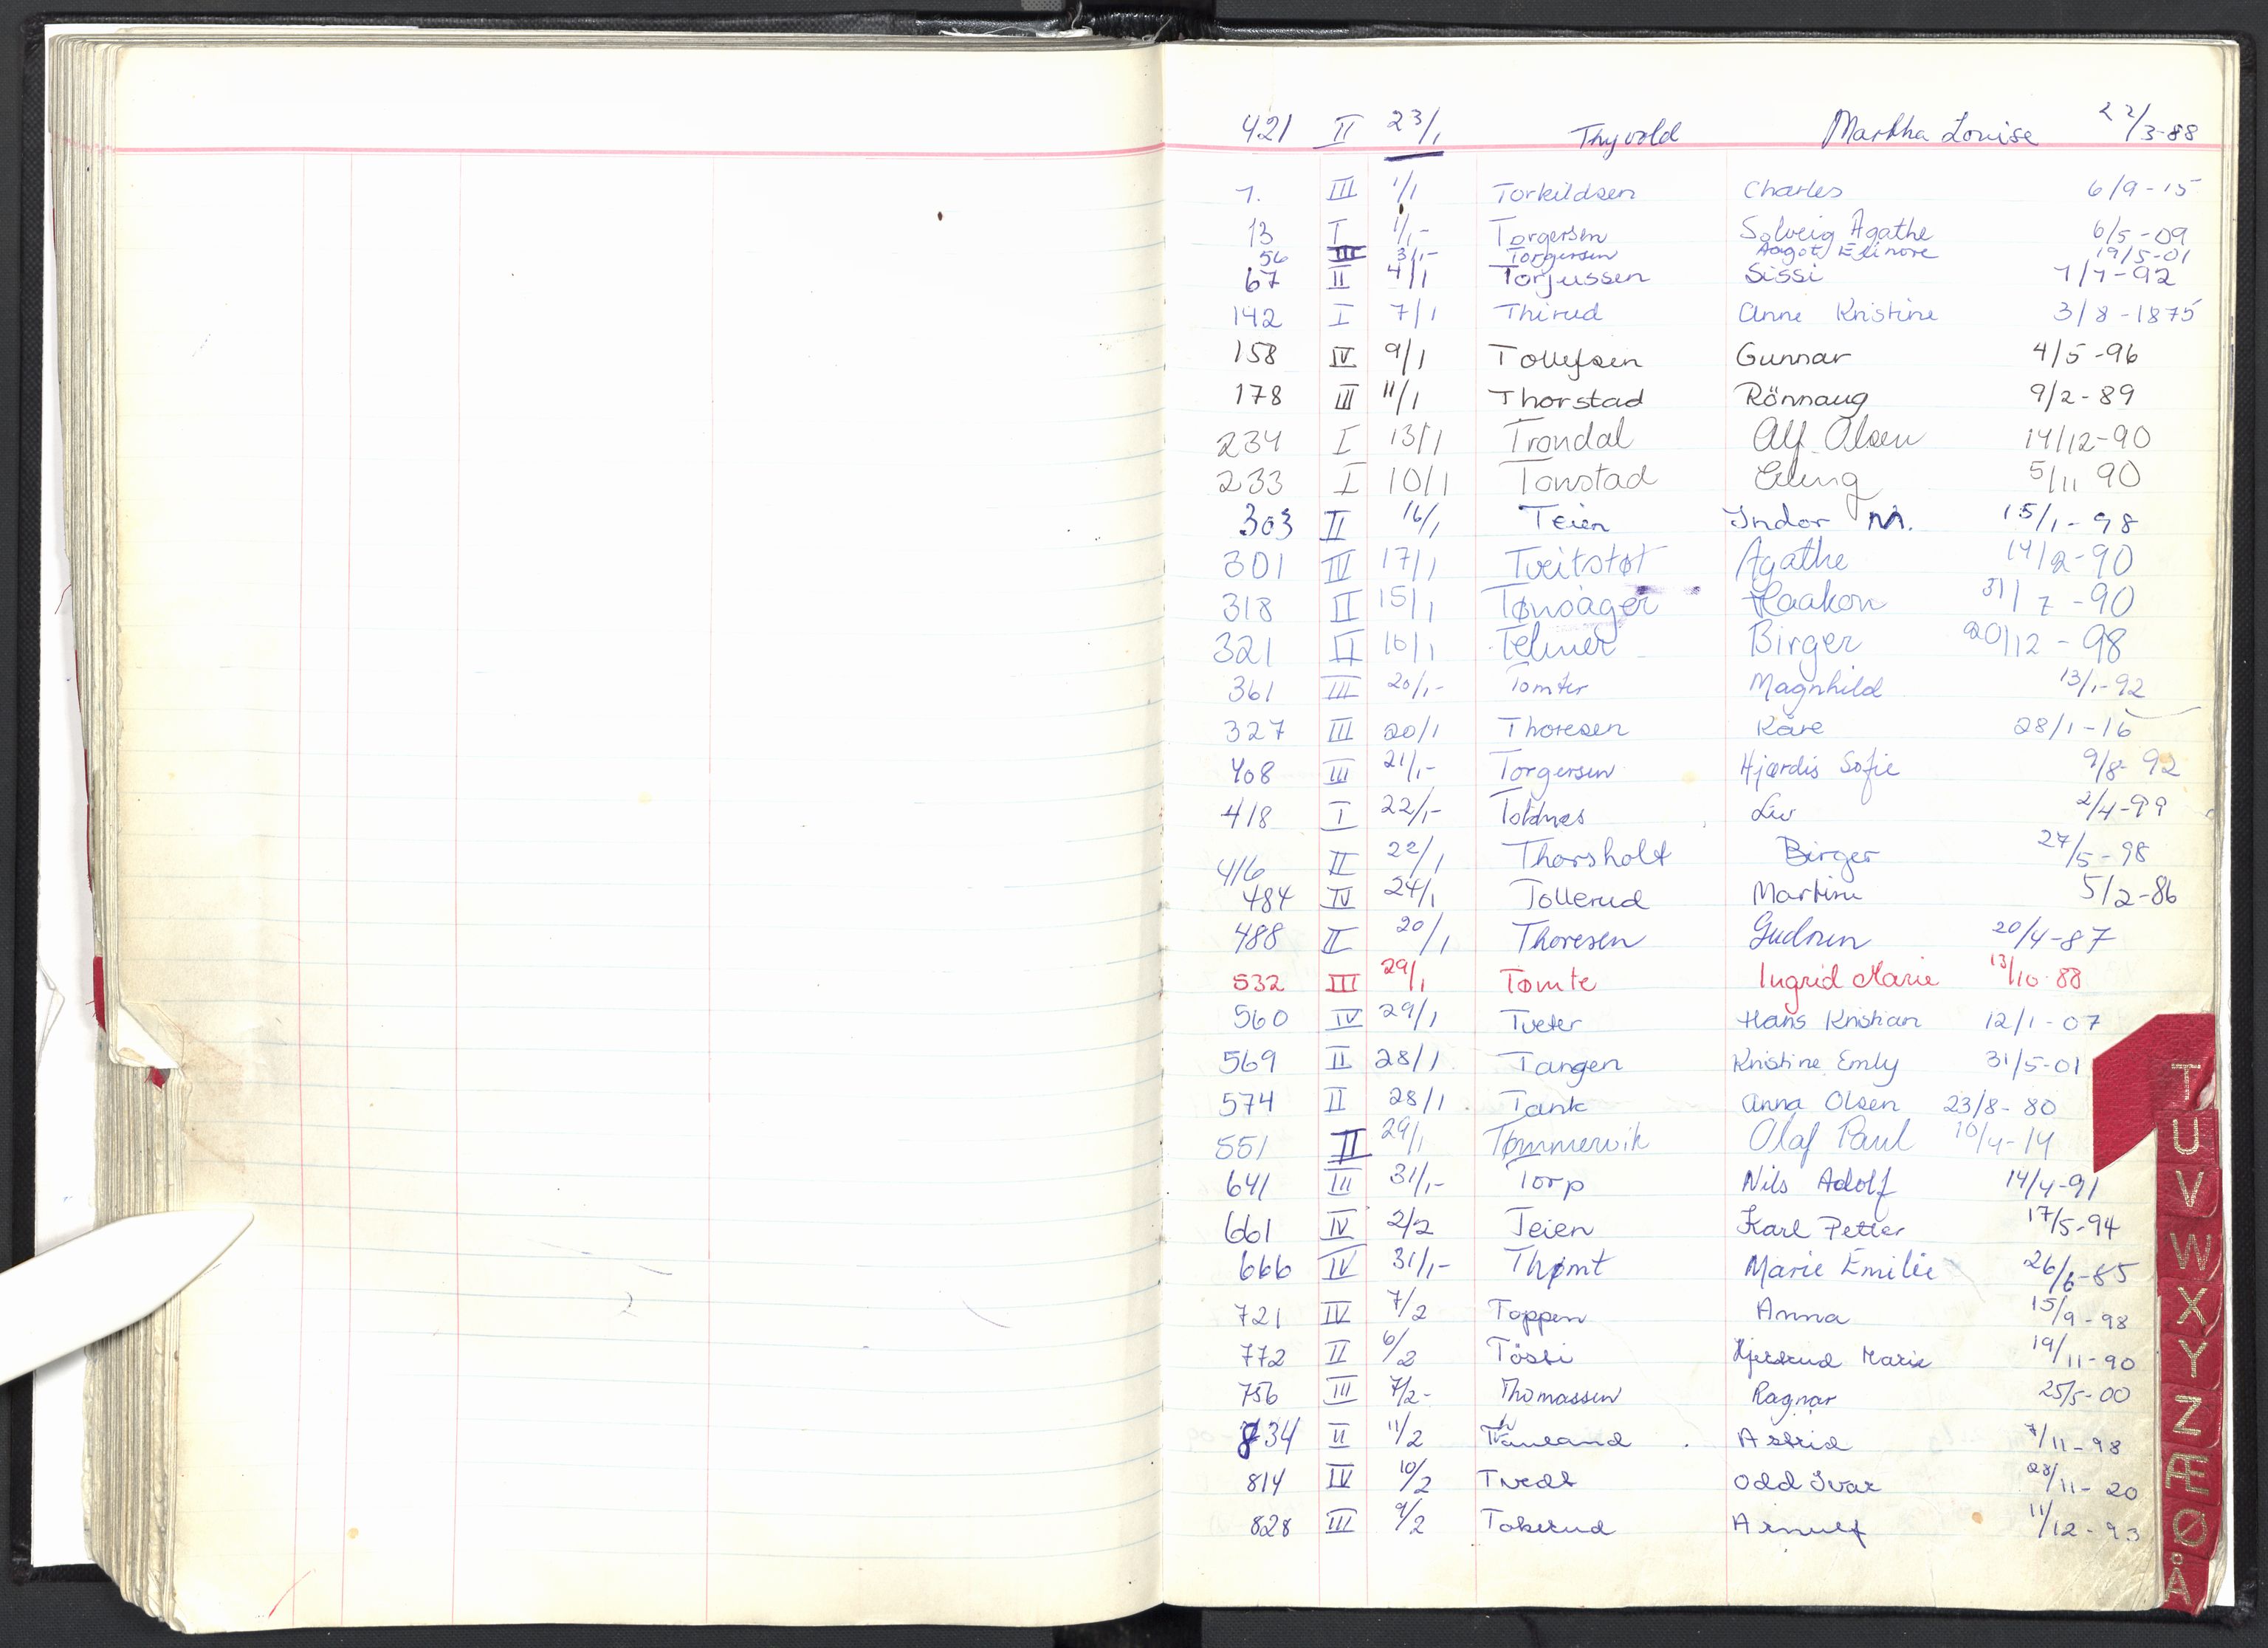 421 II 23/1 Thyvold Martha Louise 22/3-88
7. III 1/1 Torkildsen Charles 6/9-15
13 I 1/1- Torgersen Solveig Agathe 6/5-09
56 III 3/1- Torgersen Aagot Elinore 19/5-01
67 II 4/1 Torjussen Sissi 7/7-92
142 I 7/1 Thirud Anne Kristine 3/8-1875
158 IV 9/1 Tollefsen Gunnar 4/5-96
178 III 11/1 Thorstad Rönnaug 9/2-89
234 I 13/1 Trondal Alf Olsen 14/12-90
233 I 10/1 Tonstad Erling 5/11 90
303 II 16/1 Teien Indor M. 15/1-98
301 IV 17/1 Tveitstøt Agathe 14/2-90
318 II 15/1 Tønsager Haakon 31/7-90
321 II 16/1 Telmer Birger 20/12-98
361 III 20/1- Tomter Magnhild 13/1-92
327 III 20/1 Thoresen Kåre 28/1-16
408 III 21/1- Torgersen Hjørdis Sofie 9/8-92
418 I 22/1- Toldnes Liv 2/4-99
416 II 22/1 Thorsholt Birger 27/5-98
484 IV 24/1 Tollerud Martine 5/2-86
488 II 20/1 Thoresen Gudrun 20/4-87
532 III 29/1 Tømte Ingrid Marie 13/10-88
560 IV 29/1 Tveter Hans Kristian 12/1-07
569 II 28/1 Tangen Kristine Emly 31/5-01
574 II 28/1 Tank Anna Olsen 23/8-80
551 II 29/1 Tømmervik Olaf Paul 10/4-14
641 III 31/1- Torp Nils Adolf 14/4-91
661 IV 2/2 Teien Karl Petter 17/5-94
666 IV 31/1- Thømt Marie Emilie 26/6-85
721 IV 7/2 Toppen Anna 15/9-98
772 II 6/2 Tössi Marie 19/11-90
756 III 7/2- Thomassen Ragnar 25/5-00
834 II 11/2 Astrid 7/11-98
814 IV 10/2 Tvedt Odd Ivar 28/11-20
828 III 9/2 Tokerud Arnulf 11/12-93
T
U
V
W
X
Y
Z
Æ
Ø
Å